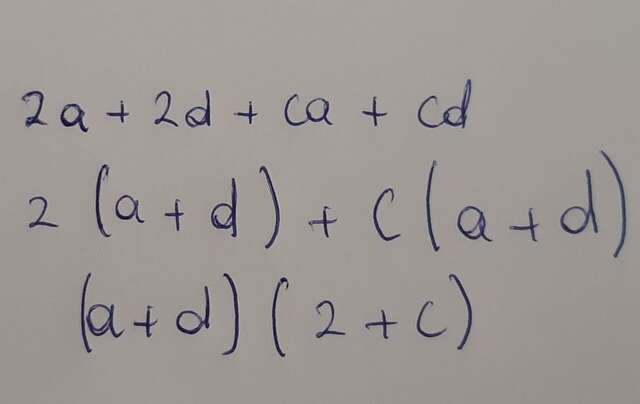 2a + 2d + ca + cd
2 (a + d) + c (a + d)
(a + d) (2 + c)